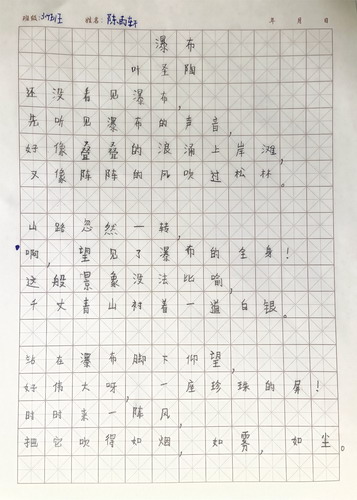 班级: 姓名:陈雨轩 年 月 日
瀑布
叶圣陶
还没看见瀑布,
先听见瀑布的声音,
好像叠叠的浪涌上岸滩,
又像阵阵的风吹过松林。
山路忽然一转,
啊,望见了瀑布的全身!
这般景象没法比喻,
千丈青山衬着一道白银。
站在瀑布脚下仰望,
好伟大呀,一座珍珠的屏!
时时来一阵风,
把它吹得如烟,如雾,如尘。